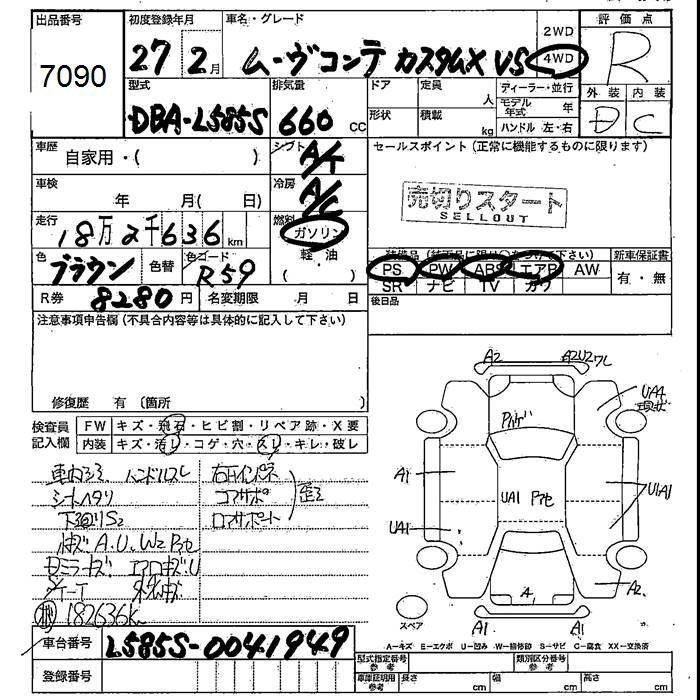 出品番号
7090
初度登録年月
27 2月
車名・グレード
ムーヴコンテ カスタムX VS
2WD
4WD
評価点
R
型式
DBA-L585S
排気量
660 cc
ドア
定員
人
形状
積載
kg
ディーラー・並行
モデル年式 年
ハンドル 左・右
外装
内装
D
C
車歴
自家用・( )
シフト
A/T
セールスポイント (正常に機能するものに限ります)
車検
年 月( 日)
冷房
A/C
売切りスタート
SELLOUT
走行
18万2千636km
燃料
ガソリン
軽・油
( )
色
ブラウン
色替
色コード
R59
装備品 (装備品に限り○をつけて下さい)
PS PW ABS エアB AW
SR ナビ TV カワ
新車保証書
有・無
R券 8280円
名変期限 月 日
後日品
注意事項申告欄(不具合内容等は具体的に記入して下さい)
修復歴 有 (箇所 )
検査員記入欄
FW キズ・飛石・ヒビ割・リペア跡・X要
内装 キズ・汚レ・コゲ・穴・スレ・キレ・破レ
車内シミ ハンドルスレ
シートヘタリ
下廻りS2
右インパネ
コアサポ
ロアサポート
歪
A.U.W2
182636K
A2
A2U2ワレ
UA4
現状
A1
UA1
UA1
U1A1
A2
A
A1
A1
スペア
A-キズ E-エクボ U-凹み W-補修跡 S-サビ C-腐食 XX-交換済
車台番号
L585S-0041949
登録番号
型式指定番号
参考
類別区分番号
参考
車庫証明用
参考
長さ cm
幅 cm
高さ cm